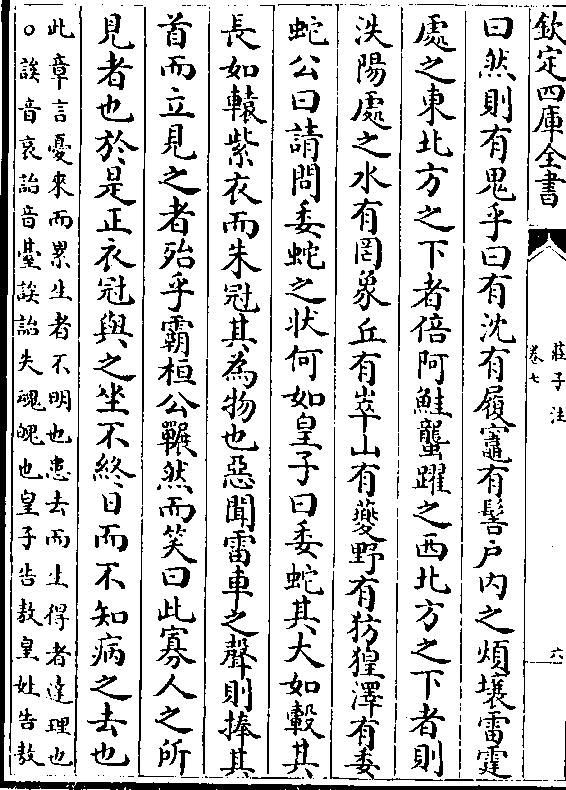 欽定四庫全書
莊子注
卷七
六
曰然則有鬼乎曰有沈有履竈有髻戶内之煩壤雷霆
處之東北方之下者倍阿鮭蠪躍之西北方之下者則
泆陽處之水有罔象丘有峷山有夔野有彷徨澤有委
蛇公曰請問委蛇之狀何如皇子曰委蛇其大如轂其
長如轅紫衣而朱冠其為物也惡聞雷車之聲則捧其
首而立見之者殆乎霸桓公囅然而笑曰此寡人之所
見者也於是正衣冠與之坐不終日而不知病之去也
此章言憂來而累生者不明也患去而生得者達理也
○誒音哀詒音臺誒詒失魂魄也皇子告敖皇姓告敖